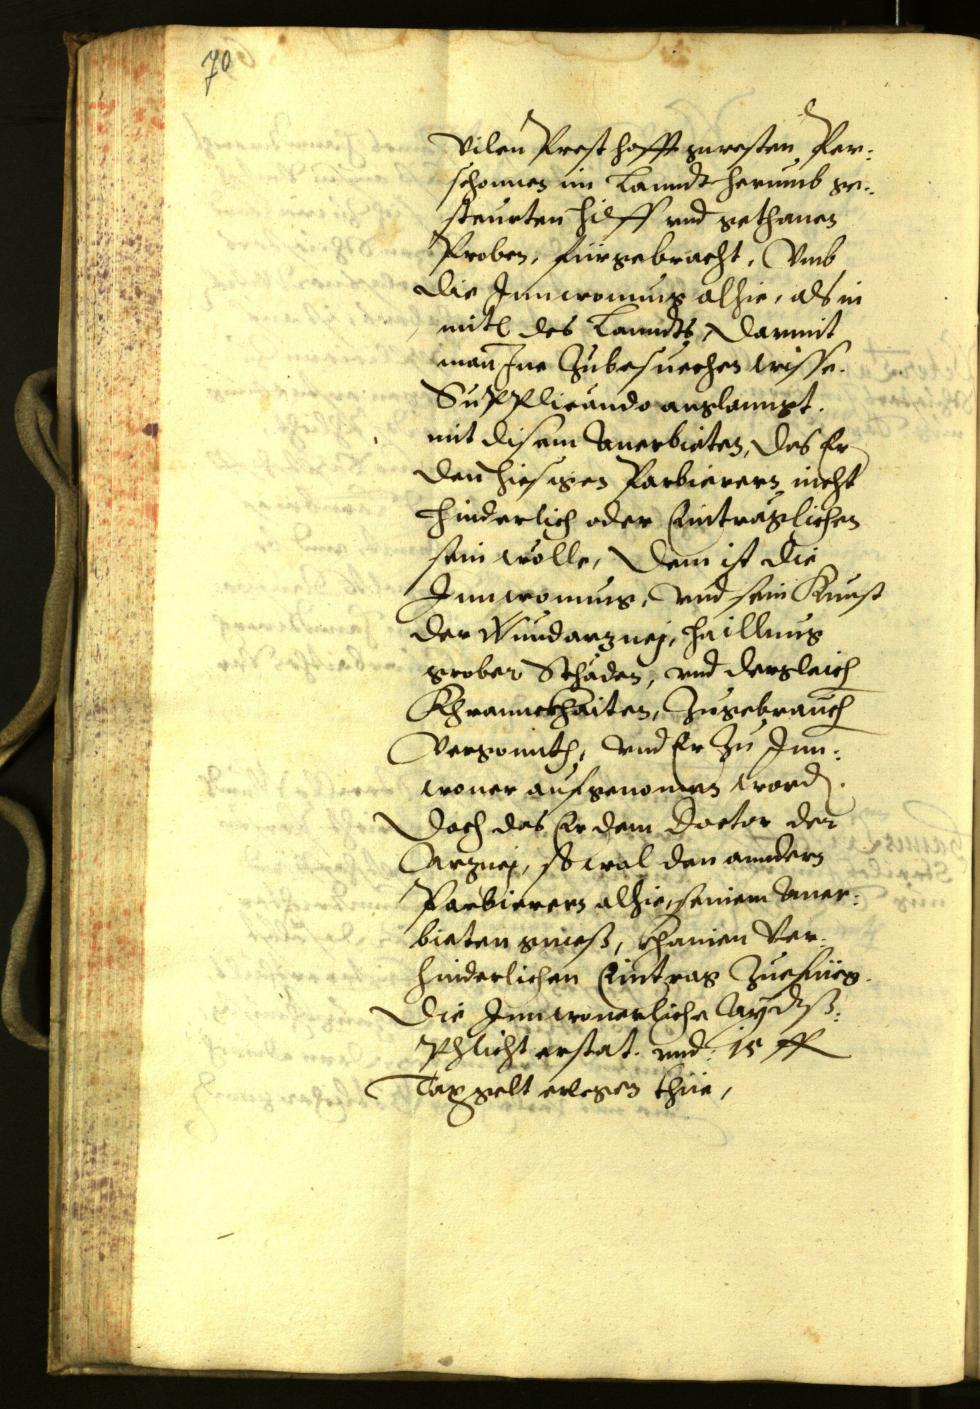 70
Vilen Presthafft zuresten Per-
schonnen im Lanndt herumb ge-
steurten hilff vnd gethanen
Proben, fürgebracht, Vmb
die Innwonung alhie, als in
mitl des Lanndts, Darmit
man Ine Zubesuechen wisse.
Supplicando anglanngt.
mit disem Anerbieten, Das Er
den hiesigen Parbierern nicht
hinderlich oder Einträglichen
sein wölle, Dem ist die
Innwonung, vnd sein Kunst
der Wundarznej, haillung
grober Schäden, vnd dergleich
Khrannckhaiten, Zugebrauch
Vergonnth, vnd Er Zu Inn-
woner aufgenomen word.
Doch das Er dem Doctor der
Arznej, so wol den anndern
Parbierern alhie, seinem Aner-
bieten gmeß, khainen Ver-
hinderlichen Eintrag Zuefüeg.
Die Innwonerliche Aydts-
Phlicht erstat. vnd 15
Taggelt erlegen thüe,